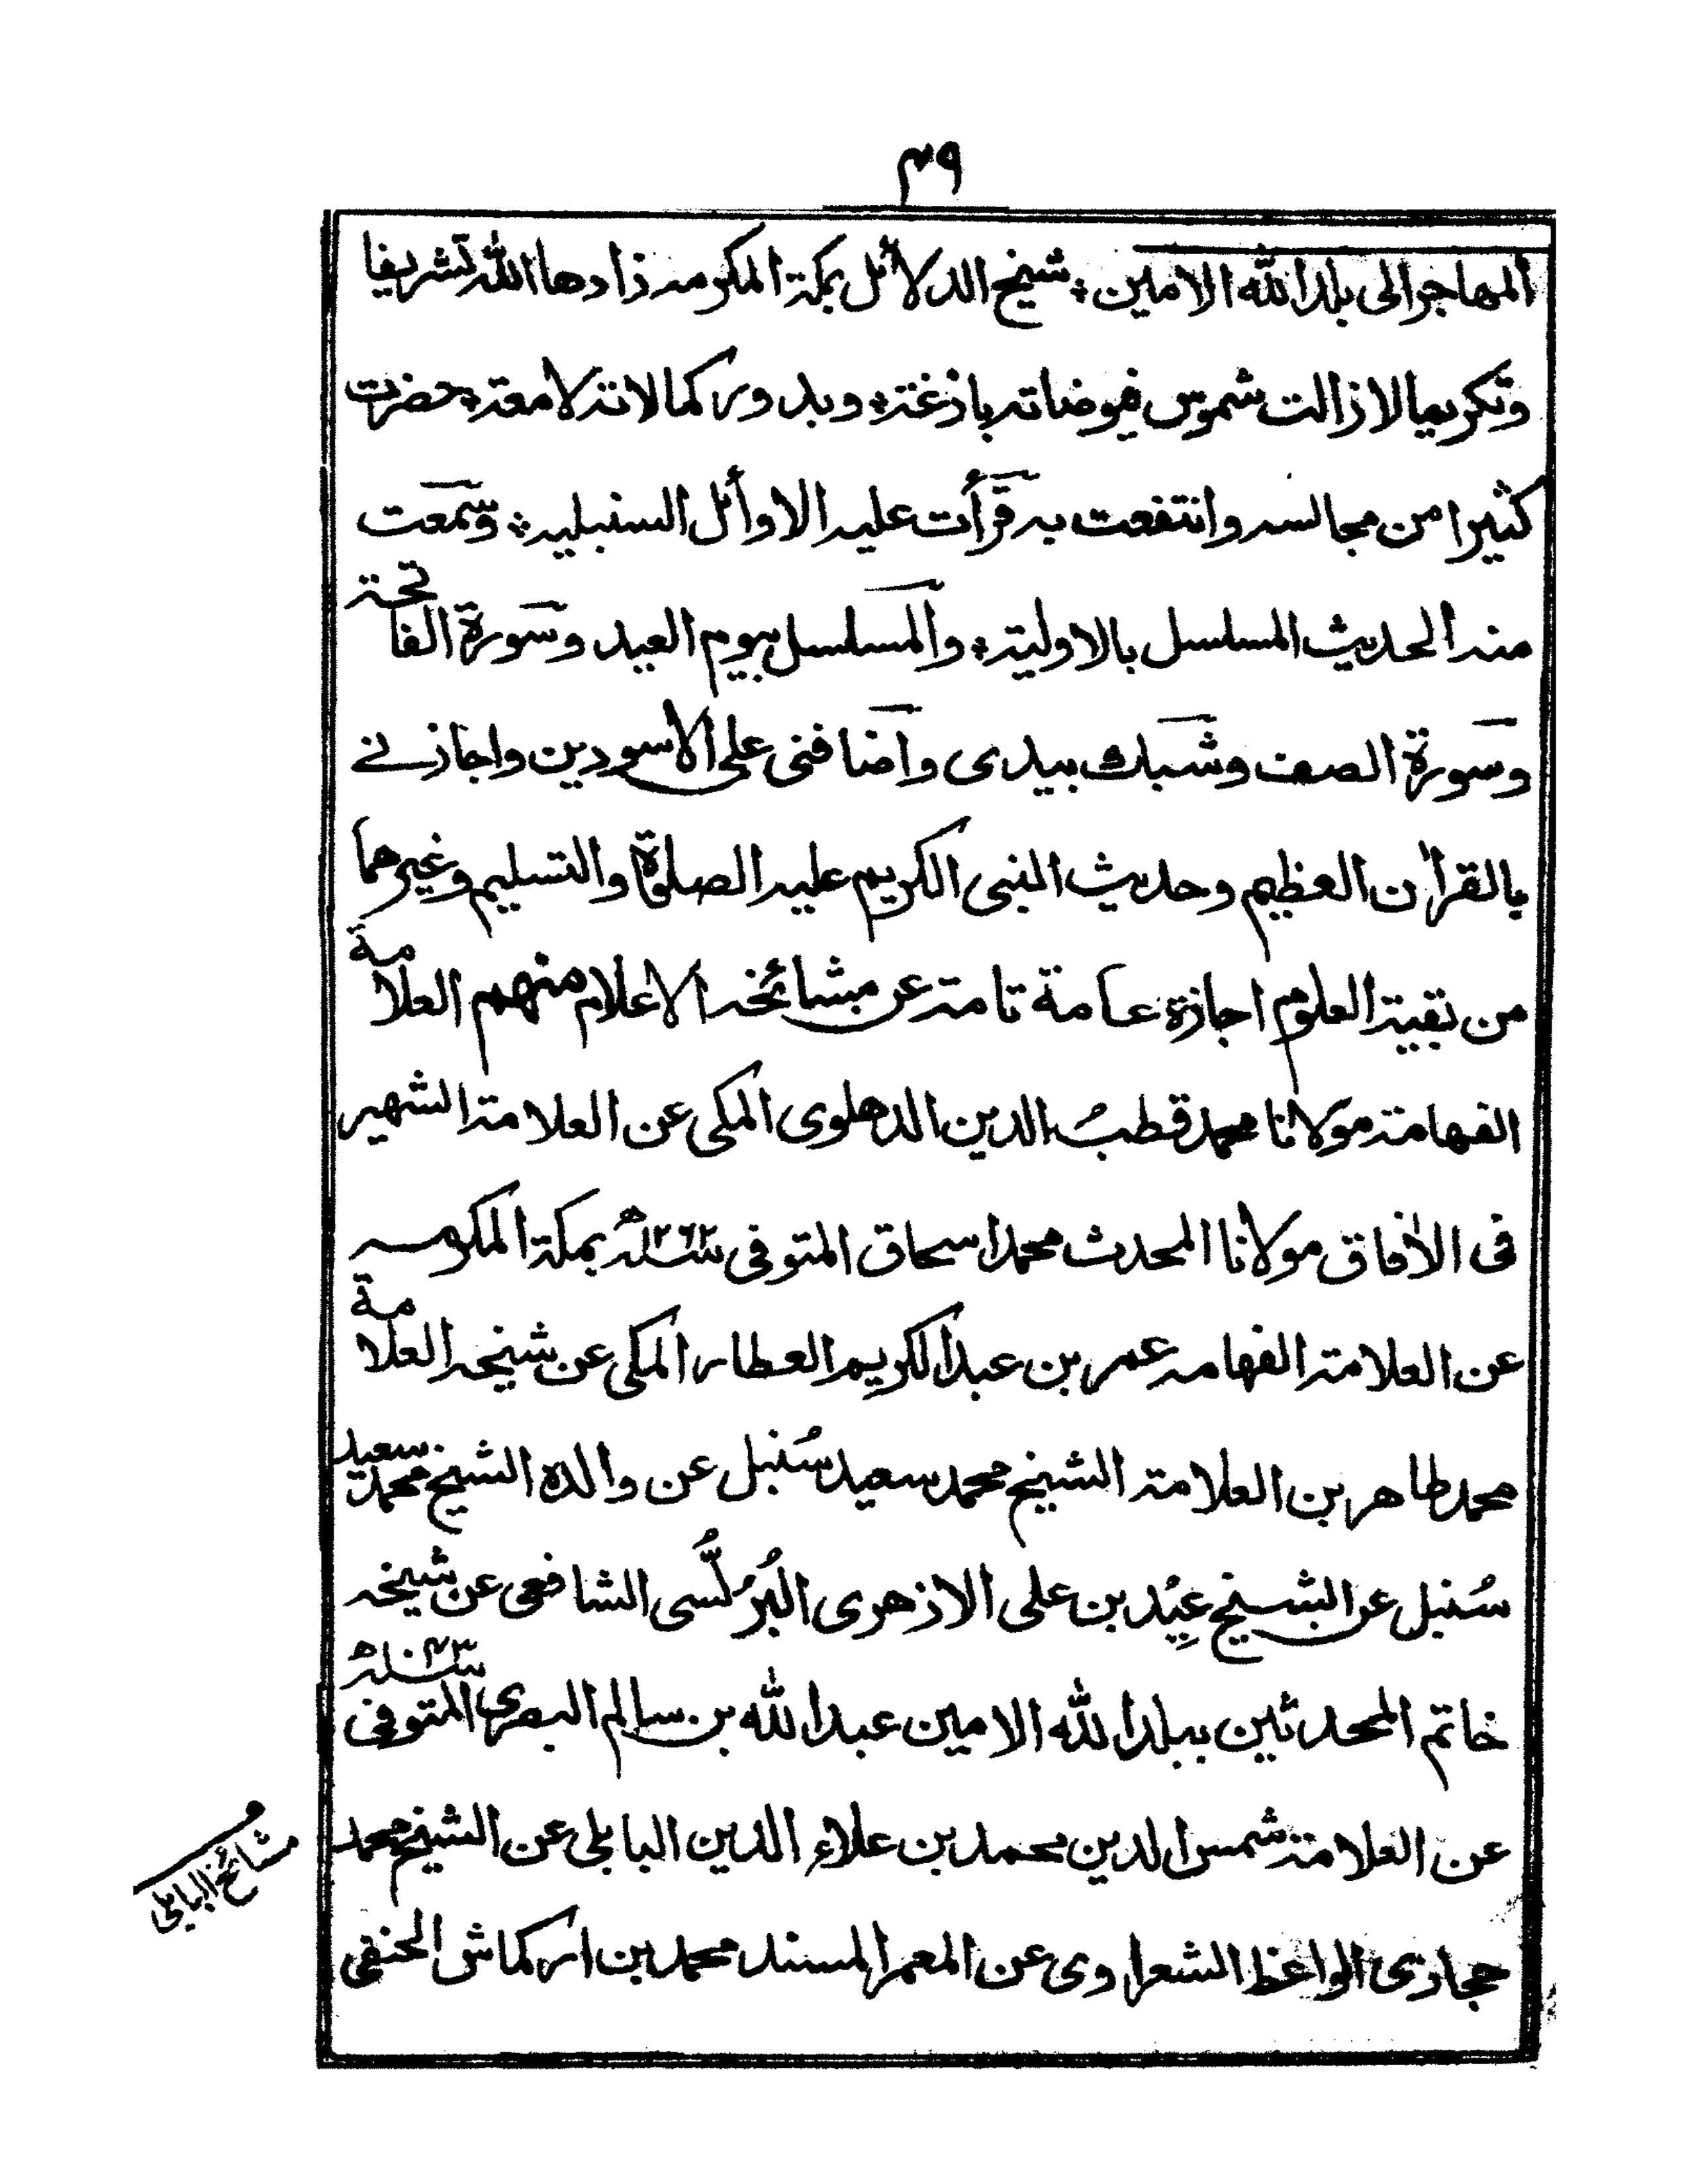 ۴۹
المهاجر الى بلد الله الامين ۞ شيخ الدلائل بمكة المكرمه زادها الله تشريفا
وتكريما لا زالت شموس فيوضاته بازغة ۞ وبدور كمالاته لامعة ۞ حضرت
كثيرا من مجالسه وانتفعت به قرأت عليه الاوائل السنبليه ۞ وسمعت
منه الحديث المسلسل بالاولية ۞ والمسلسل بيوم العيد وسورة الفاتحة
وسورة الصف وشبك بيدى واضافنى على الاسودين واجازنے
بالقرأن العظيم وحديث النبى الكريم عليه الصلوة والتسليم وغيرهما
من بقية العلوم اجازة عامة تامة عن مشائخه الاعلام منهم العلامة
الفهامة مولانا محمد قطب الدين الدهلوى المكى عن العلامة الشهير
فى الأفاق مولانا المحدث محمد اسحاق المتوفى سنة ۱۲۶۲ھ بمكة المكرمه
عن العلامة الفهامه عمر بن عبد الكريم العطار المكى عن شيخه العلامة
محمد طاهر بن العلامة الشيخ محمد سعيد سُنبل عن والده الشيخ محمد سعيد
سُنبل عن الشيخ عِيُد بن على الازهرى البُرُلُّسى الشافعى عن شيخه
خاتم المحدثين ببلد الله الامين عبد الله بن سالم البصرى المتوفى
عن العلامة شمس الدين محمد بن علاء الدين البابلى عن الشيخ محمد
حجازى الواعظ الشعراوى عن المعمر المسند محمد بن اركماش الحنفى
مشائخ البابلى